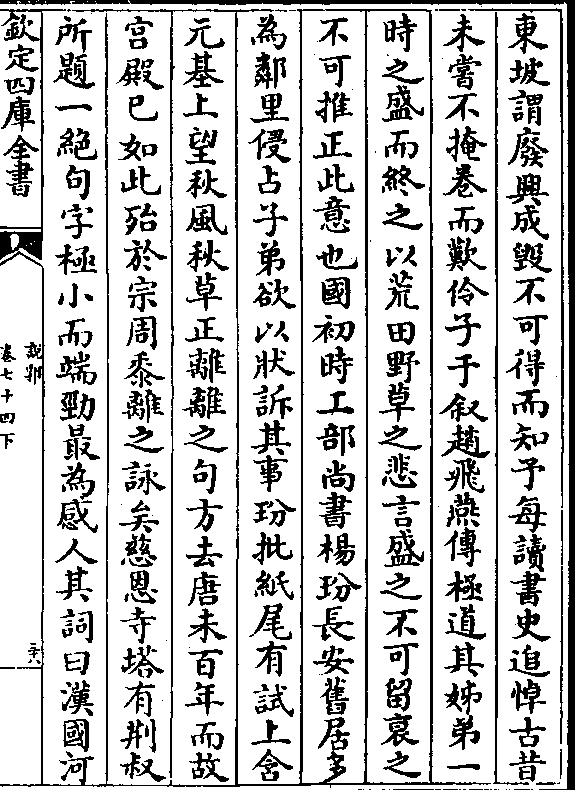 東坡謂廢興成毀不可得而知予每讀書史追悼古昔
未嘗不掩卷而歎伶子于叙趙飛燕傳極道其姊弟一
時之盛而終之以荒田野草之悲言盛之不可留衰之
不可推正此意也國初時工部尚書楊玢長安舊居多
為鄰里侵占子弟欲以狀訴其事玢批紙尾有試上含
元基上望秋風秋草正離離之句方去唐未百年而故
宫殿已如此殆於宗周黍離之詠矣慈恩寺塔有荆叔
所題一絕句字極小而端勁最為感人其詞曰漢國河
欽定四庫全書
說郛
卷七十四下
二十八